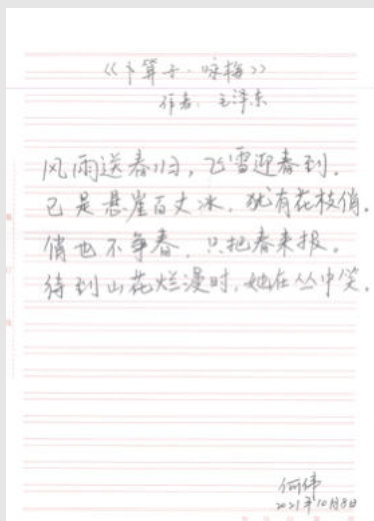 《卜算子·咏梅》
作者：毛泽东
风雨送春归，飞雪迎春到。
已是悬崖百丈冰，犹有花枝俏。
俏也不争春，只把春来报。
待到山花烂漫时，她在丛中笑。
何伟
2021年10月8日